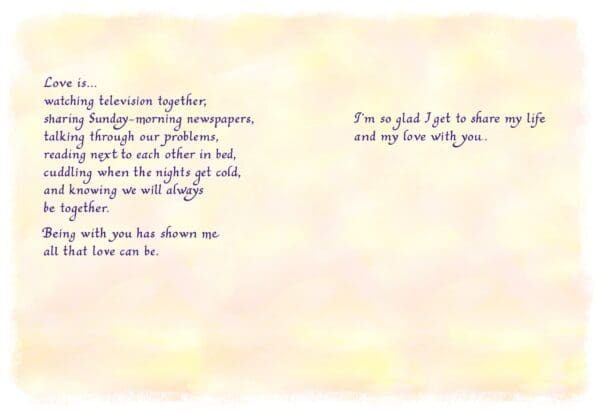 Love is...
watching television together,
sharing Sunday-morning newspapers,
talking through our problems,
reading next to each other in bed,
cuddling when the nights get cold,
and knowing we will always
be together.
Being with you has shown me
all that love can be.
I'm so glad I get to share my life
and my love with you.